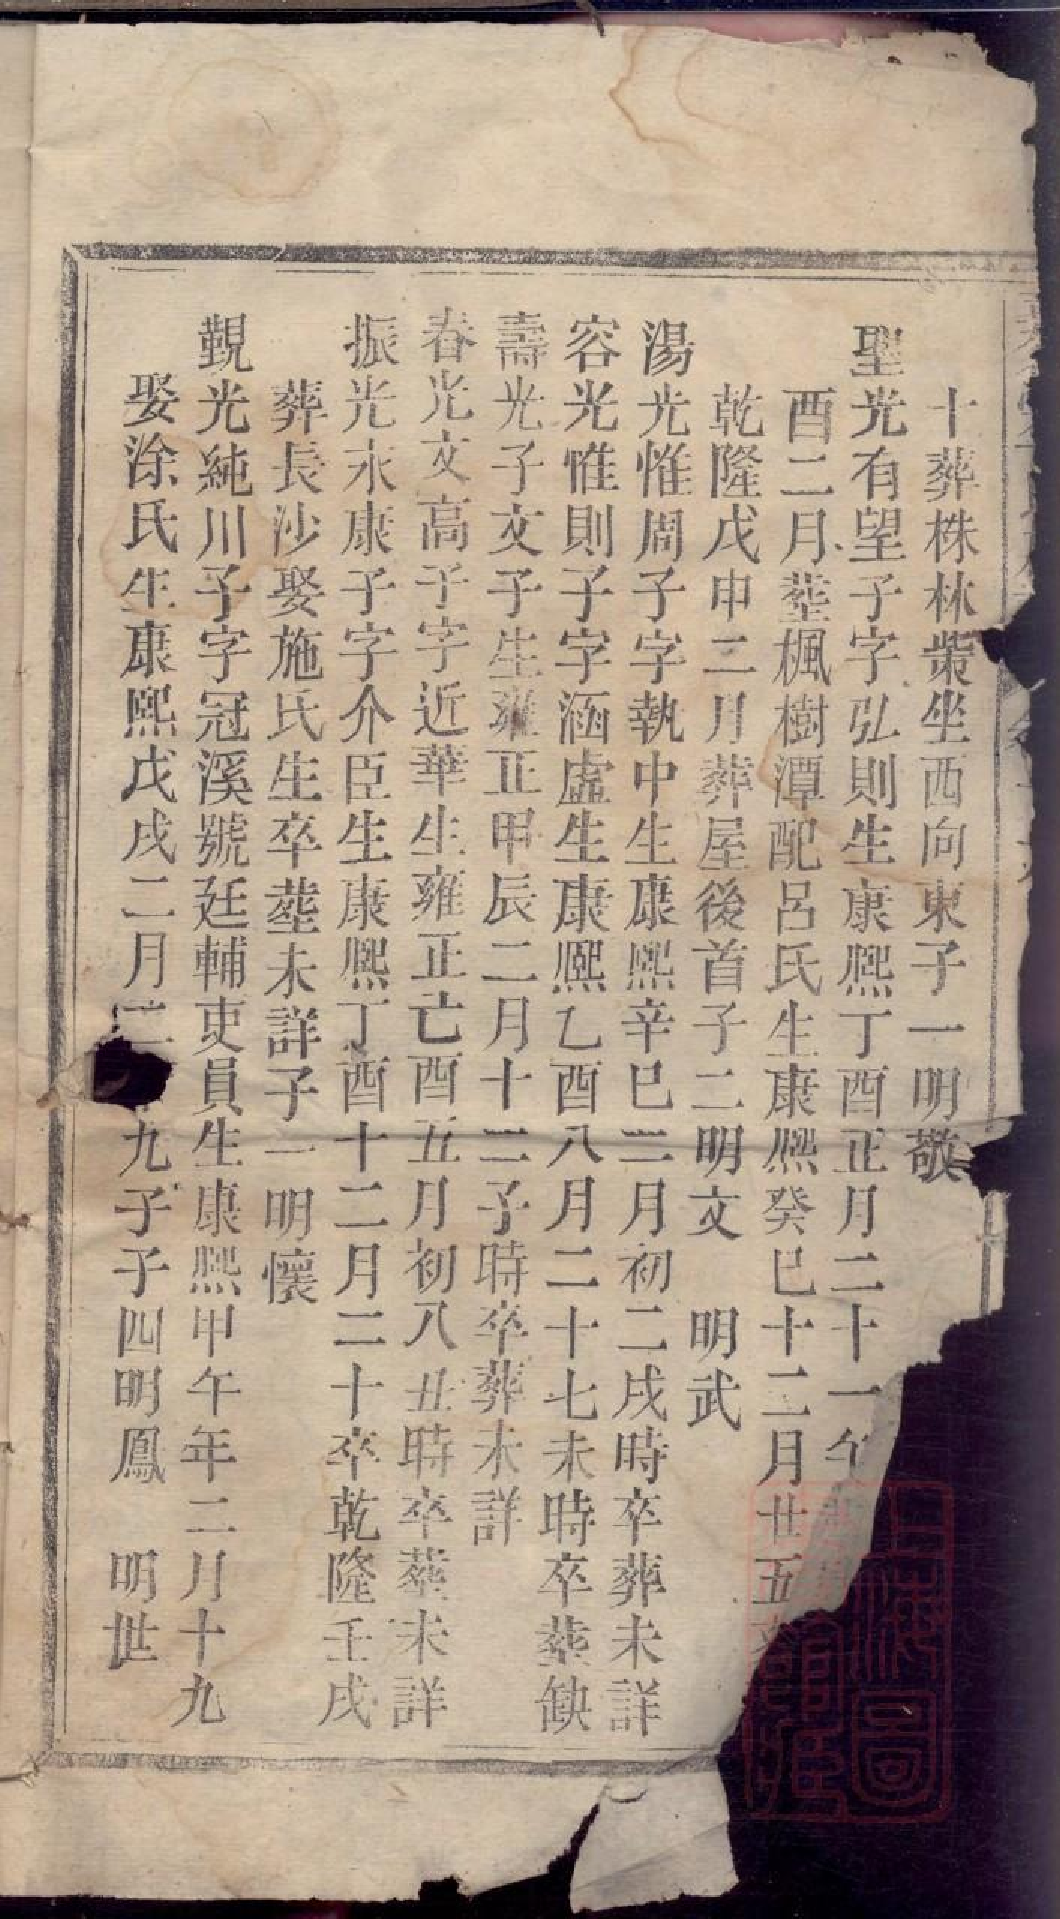 十葬株林柴坐西向東子一明敬
聖光有望子字弘則生康熙丁酉正月二十一
酉二月塟楓樹潭配呂氏生康熙癸巳十二月廿五
乾隆戊申二月葬屋後首子二明文　明武
湯光惟周子字執中生康熙辛巳三月初二戌時卒葬未詳
容光惟則子字涵虛生康熙乙酉八月二十七未時卒塟缺
壽光子文子生雍正甲辰二月十二子時卒葬未詳
春光文高子字近華生雍正亡酉五月初八丑時卒葬未詳
振光永康子字介臣生康熙丁酉十二月二十卒乾隆壬戌
葬長沙娶施氏生卒塟未詳子一明懷
覲光純川子字冠溪號廷輔吏員生康熙甲午年二月十九
娶涂氏生康熙戊戌二月二九子子四明鳳　明世
上海圖